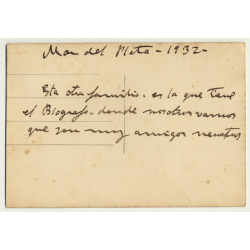 Mar del Plata - 1932 -
Esta otra familia - es la que tiene
el Biografo - donde nosotros vamos
que son muy amigos nuestros